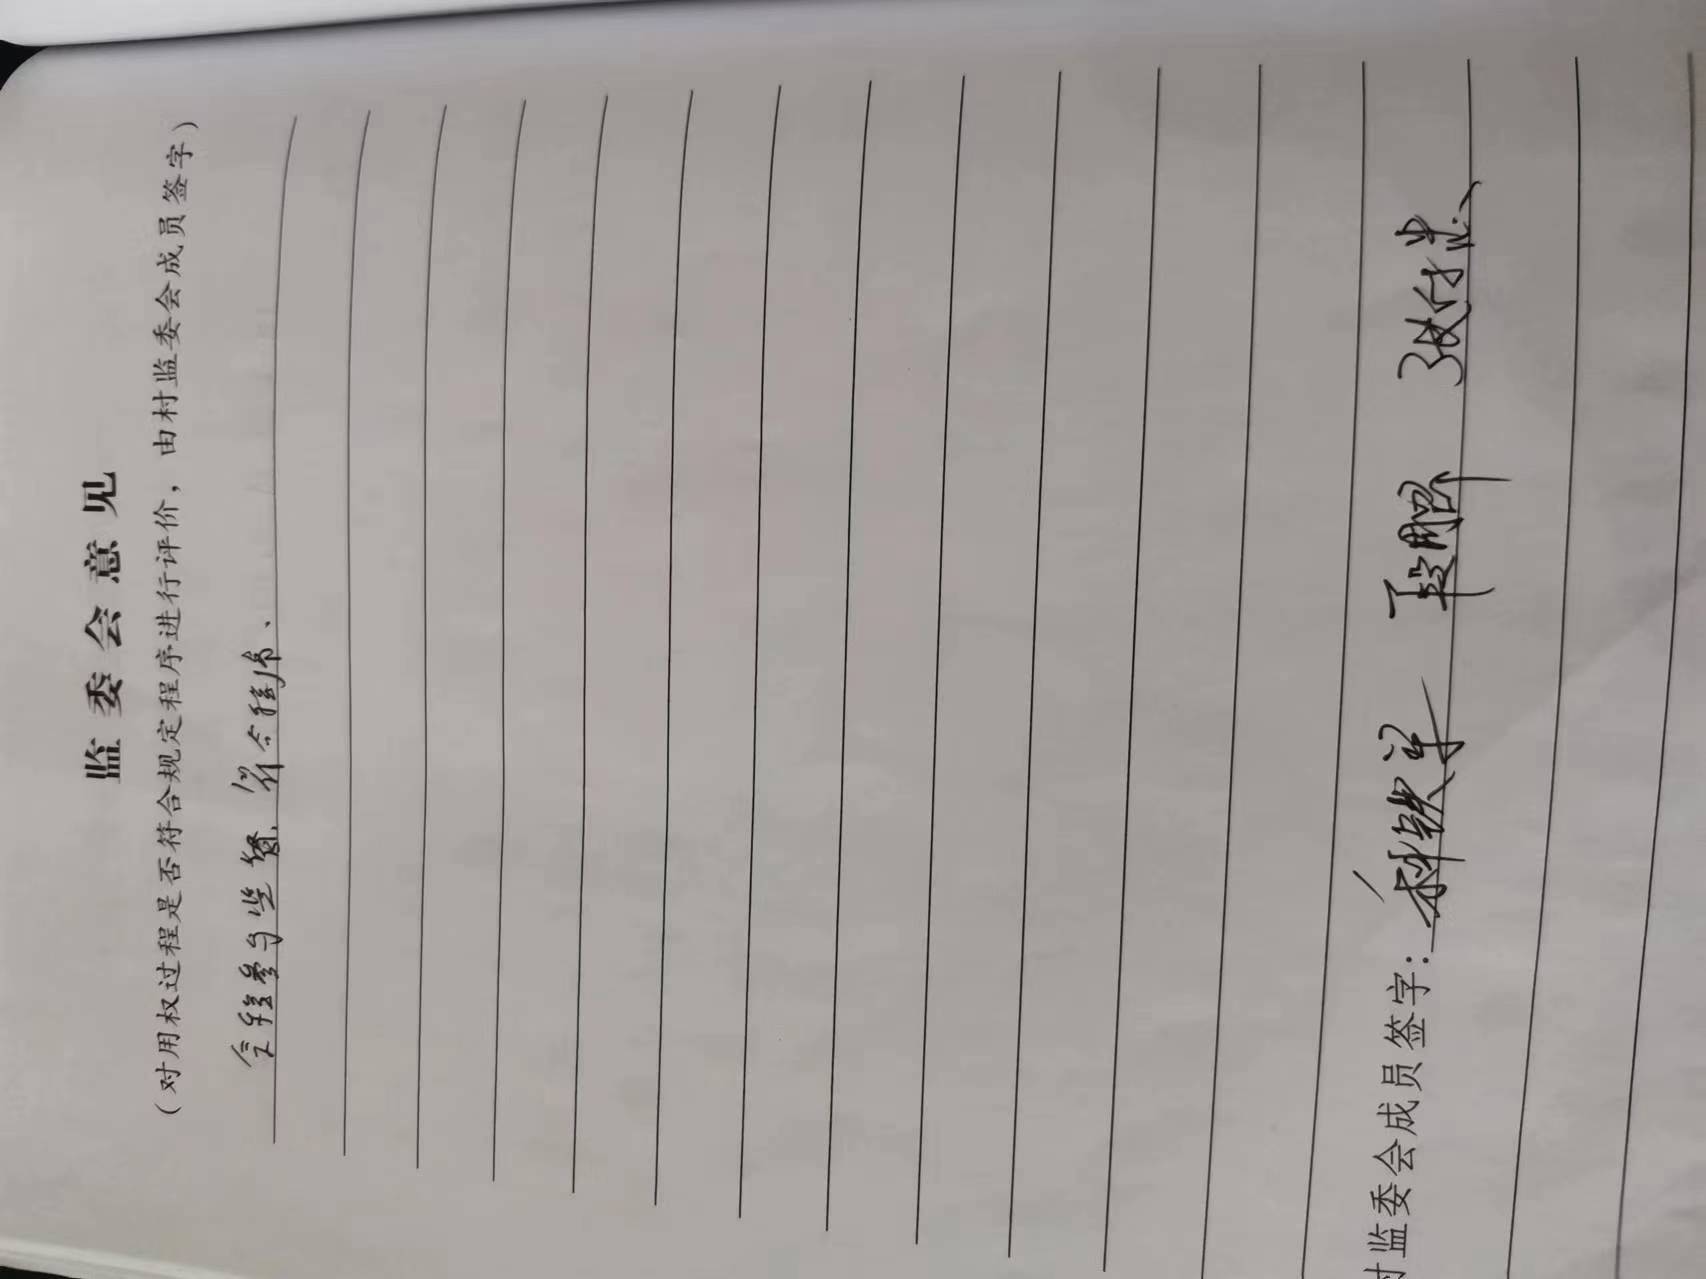 监委会意见
(对用权过程是否符合规定程序进行评价，由村监委会成员签字)
全程参与监督、符合程序、
村监委会成员签字：